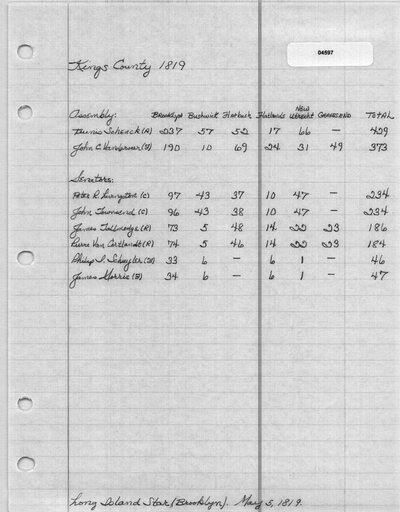 04597
Kings County 1819
Assembly: Brooklyn Bushwick Flatbush Flatlands New Utrecht Gravesend Total
Teunis Schenck (R) 237 57 52 17 66 — 429
John C. Vanderveer (F) 190 10 69 24 31 49 373
Senators:
Peter R. Livingston (C) 97 43 37 10 47 — 234
John Townsend (C) 96 43 38 10 47 — 234
James Tallmadge (R) 73 5 48 14 22 23 186
Pierre Van Cortlandt (R) 74 5 46 14 22 23 184
Philip S. Schuyler 33 6 — 6 1 — 46
James Morris 34 6 — 6 1 — 47
Long Island Star (Brooklyn). May 5, 1819.